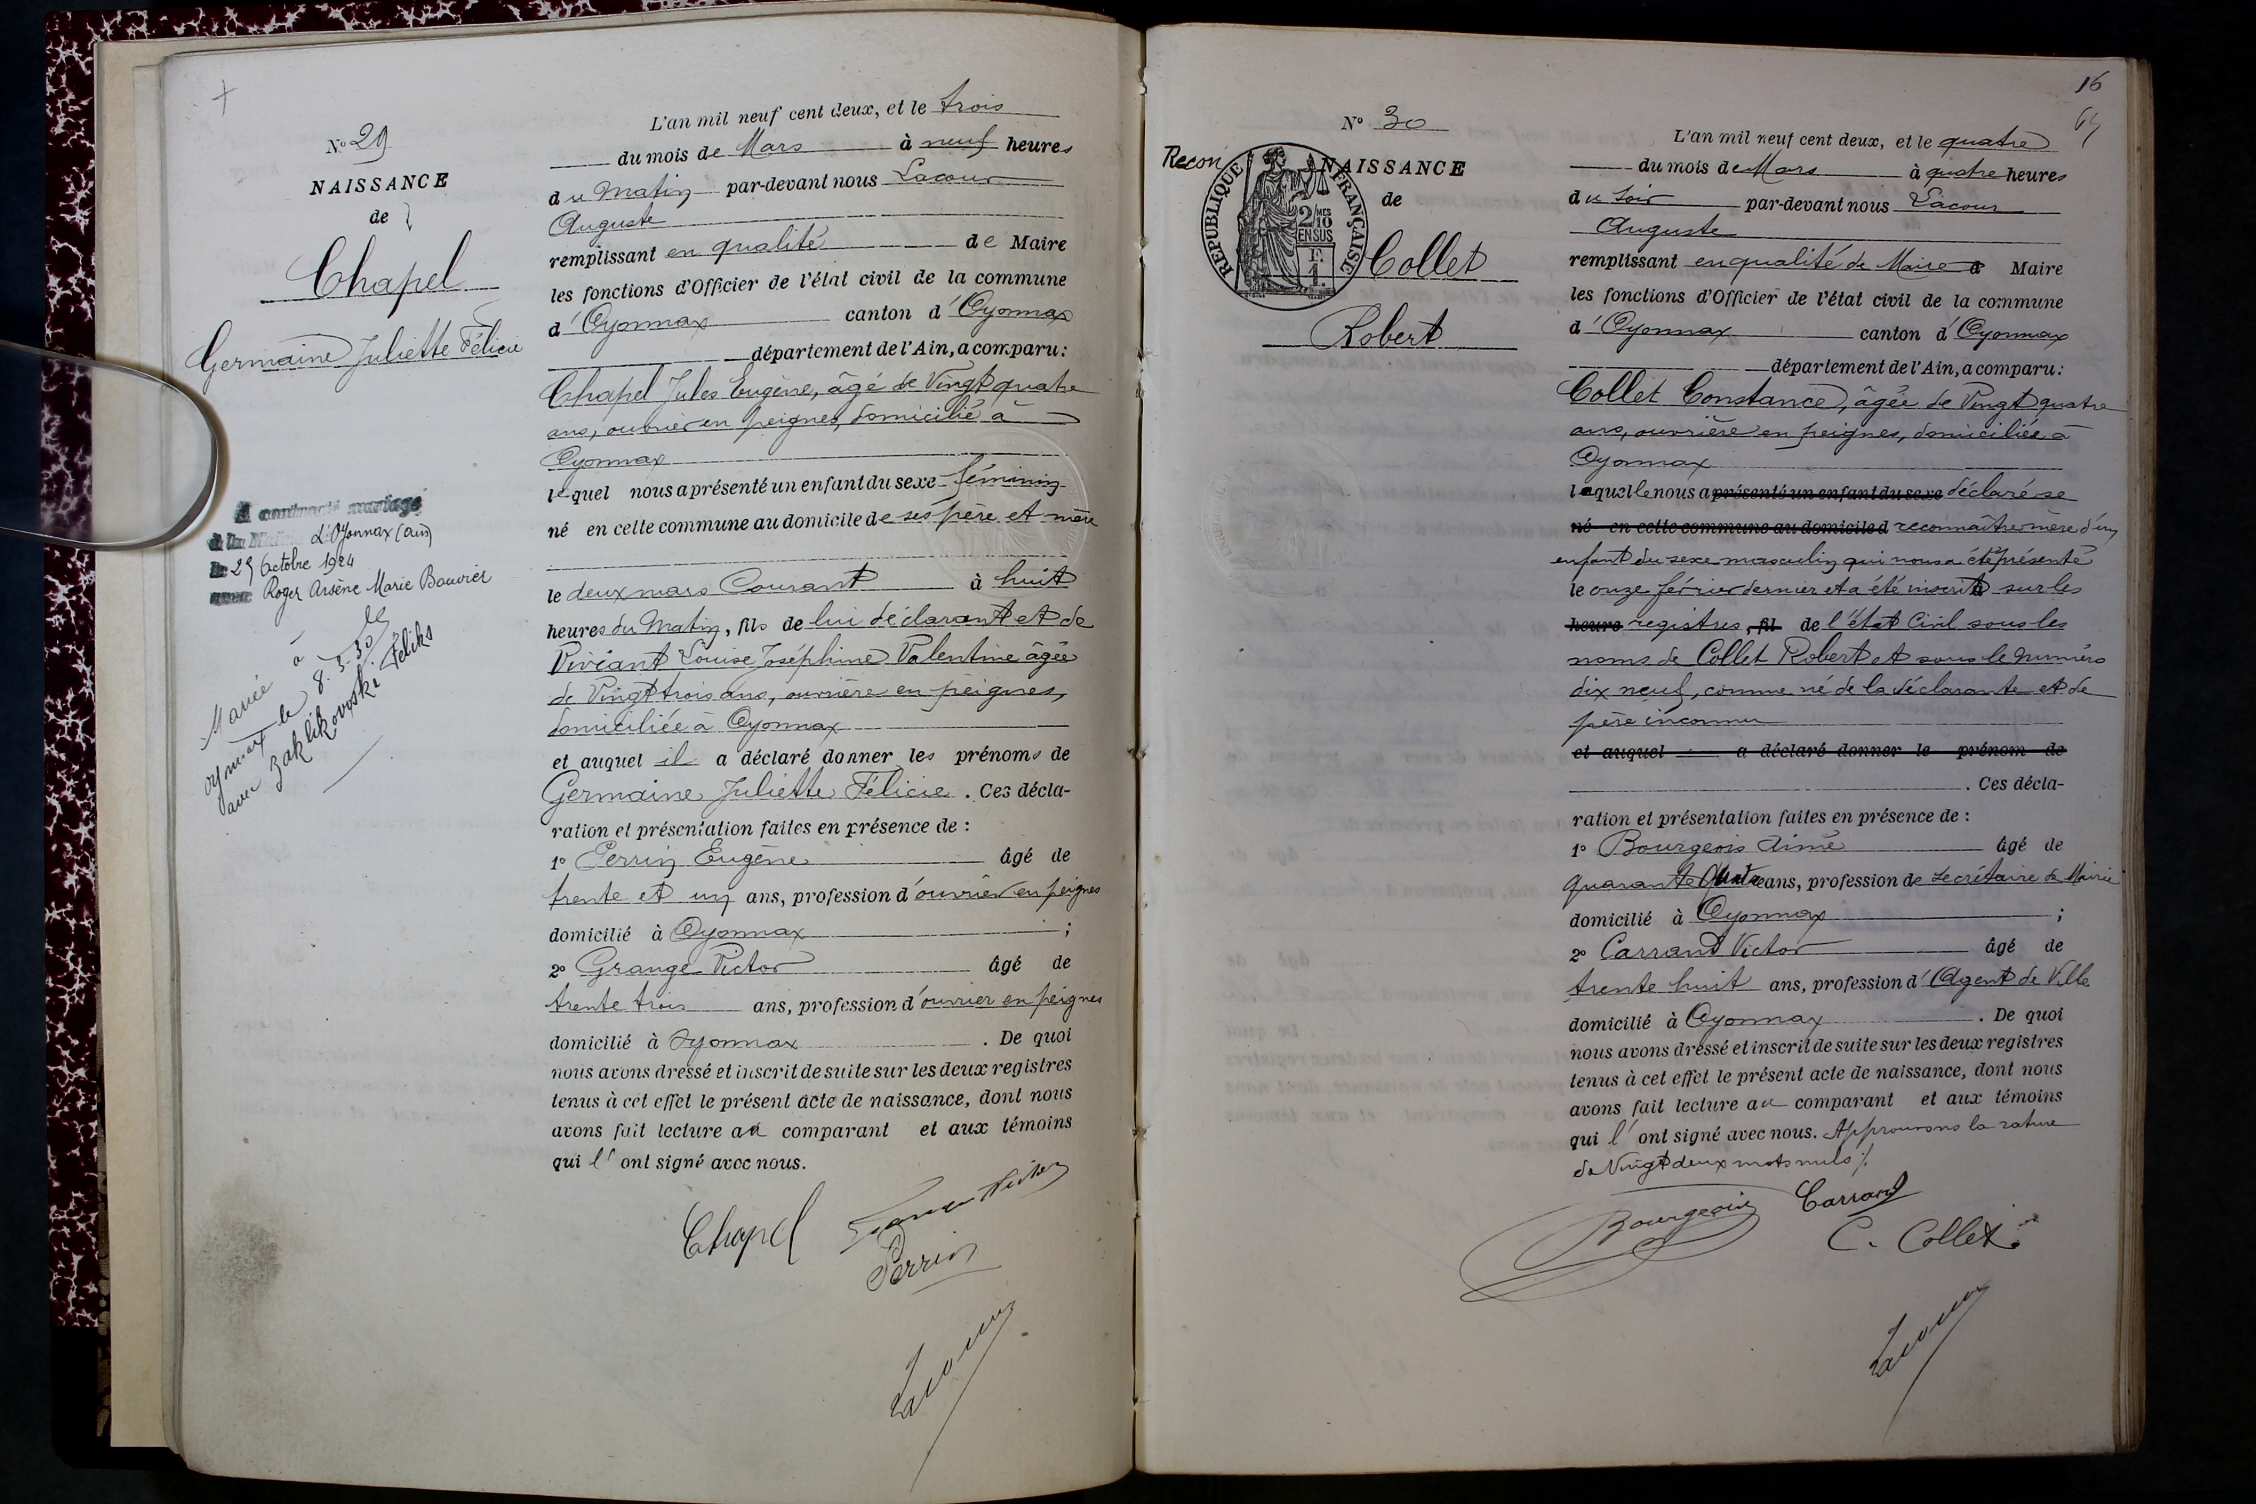 N° 29
NAISSANCE
de
Chapel
Germaine Juliette Félicie
A contracté mariage
à la Mairie d'Oyonnax (Ain)
le 25 Octobre 1924
avec Roger Arsène Marie Bouvier
Mariée à
Oyonnax le 8.3.30
avec Zaklikowski Féliks
L'an mil neuf cent deux, et le trois
du mois de Mars à neuf heures
du Matin par-devant nous Lacour
Auguste
remplissant en qualité de Maire
les fonctions d'Officier de l'état civil de la commune
d'Oyonnax canton d'Oyonnax
département de l'Ain, a comparu:
Chapel Jules Eugène, âgé de Vingt quatre
ans, ouvrier en peignes, domicilié à
Oyonnax
lequel nous a présenté un enfant du sexe féminin
né en cette commune au domicile de ses père et mère
le deux mars Courant à huit
heures du Matin, fils de lui déclarant et de
Viviant Louise Joséphine Valentine âgée
de Vingt trois ans, ouvrière en peignes,
domiciliée à Oyonnax
et auquel il a déclaré donner les prénoms de
Germaine Juliette Félicie. Ces décla-
ration et présentation faites en présence de :
1° Perrin Eugène âgé de
trente et un ans, profession d'ouvrier en peignes
domicilié à Oyonnax ;
2° Grange Victor âgé de
trente trois ans, profession d'ouvrier en peignes
domicilié à Oyonnax . De quoi
nous avons dressé et inscrit de suite sur les deux registres
tenus à cet effet le présent acte de naissance, dont nous
avons fait lecture au comparant et aux témoins
qui l' ont signé avec nous.
Chapel Grange Victor
Perrin
Lacour
16
N° 30
Recon
NAISSANCE
de
RÉPUBLIQUE FRANÇAISE
2/10 MES
EN SUS
Collet
Robert
L'an mil neuf cent deux, et le quatre
du mois de Mars à quatre heures
du soir par-devant nous Lacour
Auguste
remplissant en qualité de Maire d Maire
les fonctions d'Officier de l'état civil de la commune
d'Oyonnax canton d'Oyonnax
département de l'Ain, a comparu:
Collet Constance, âgée de Vingt quatre
ans, ouvrière en peignes, domiciliée à
Oyonnax
laquelle nous a présenté un enfant du sexe déclaré se
né en cette commune au domicile d reconnaître mère d'un
enfant du sexe masculin qui nous a été présenté
le onze février dernier et a été inscrit sur les
heure registres, fil de l'état Civil sous les
noms de Collet Robert et sous le numéro
dix neuf, comme né de la déclarante et de
père inconnu
et auquel a déclaré donner le prénom de
. Ces décla-
ration et présentation faites en présence de :
1° Bourgeois Aimé âgé de
quarante quatre ans, profession de secrétaire de Mairie
domicilié à Oyonnax ;
2° Carrant Victor âgé de
trente huit ans, profession d'Agent de Ville
domicilié à Oyonnax . De quoi
nous avons dressé et inscrit de suite sur les deux registres
tenus à cet effet le présent acte de naissance, dont nous
avons fait lecture au comparant et aux témoins
qui l' ont signé avec nous. Approuvons la rature
de Vingt deux mots nuls
Bourgeois Carrant
C. Collet
Lacour